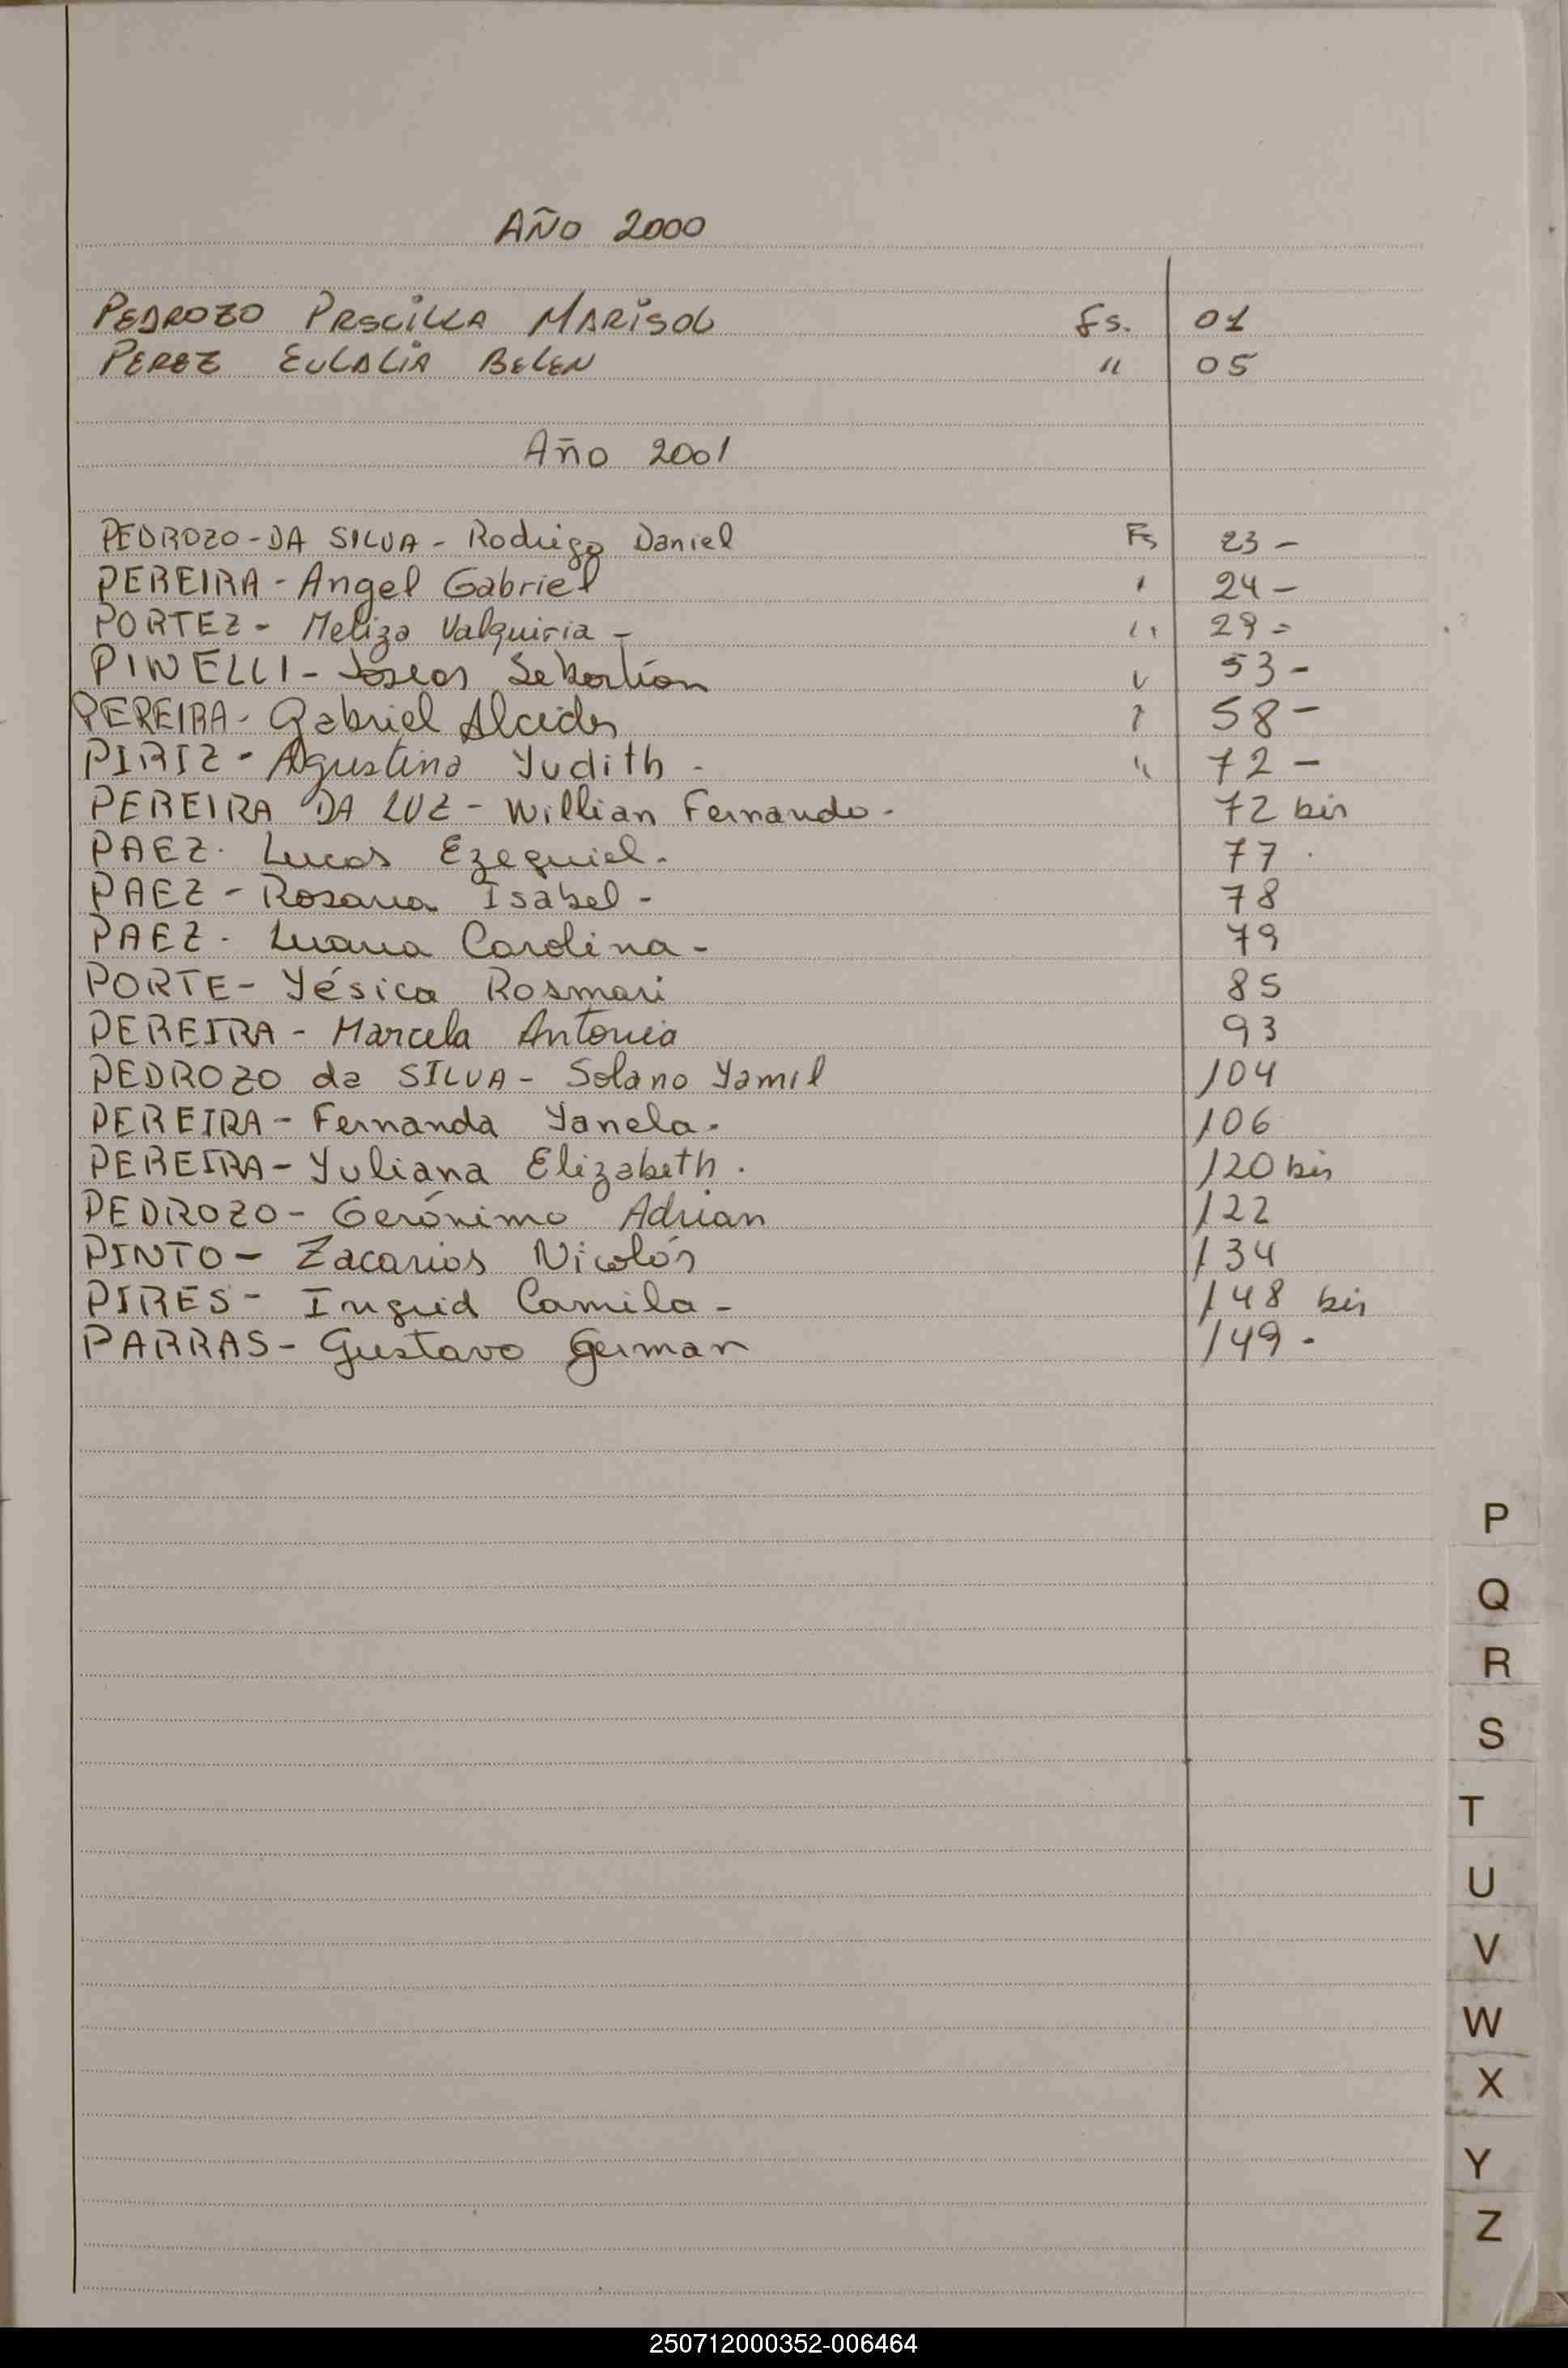 AÑO 2000
PEDROZO PRSCILLA MARISOL Fs. 01
PEREZ EULALIA BELEN " 05
Año 2001
PEDROZO-DA SILVA - Rodrigo Daniel Fs 23 -
PEREIRA - Angel Gabriel ' 24 -
PORTEZ - Meliza Valquiria - " 29 =
PINELLI - Sebastián 53 -
PEREIRA - Gabriel Alcides 58 -
PIRIZ - Agustina Yudith - " 72 -
PEREIRA DA LUZ - Willian Fernando - 72 bis
PAEZ. Lucas Ezequiel. 77.
PAEZ - Rosana Isabel - 78
PAEZ - Luana Carolina - 79
PORTE - Yésica Rosmari 85
PEREIRA - Marcela Antonia 93
PEDROZO da SILVA - Solano Yamil 104
PEREIRA - Fernanda Yanela. 106
PEREIRA - Yuliana Elizabeth. 120 bis
PEDROZO - Gerónimo Adrian 122
PINTO - Zacarias Nicolás 134
PIRES - Ingrid Camila - 148 bis
PARRAS - Gustavo German 149 -
P
Q
R
S
T
U
V
W
X
Y
Z
250712000352-006464